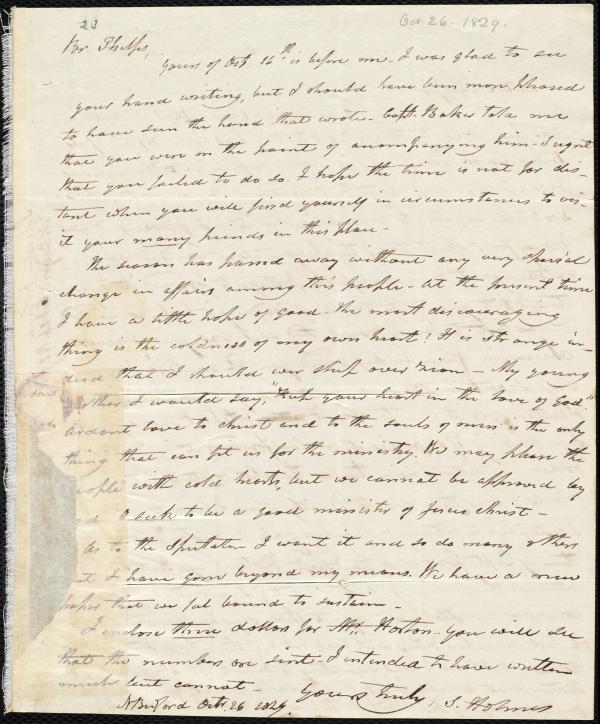 23
Oct 26. 1829.
Br. Phelps,
yours of Oct. 16th is before me. I was glad to see
your hand writing, but I should have been more pleased
to have seen the hand that wrote. Capt. Baker told me
that you were on the point of accompanying him. I regret
that you failed to do so. I hope the time is not far dis-
tant when you will find yourself in circumstances to vis-
it your many friends in this place.
The season has passed away without any very special
change in affairs among this people. At the present time
I have a little hope of good. The most discouraging
thing is the coldness of my own heart! It is strange in-
deed that I should ever sleep over Zion. My young
brother I would say, "Keep your heart in the love of God."
Ardent love to Christ and to the souls of men is the only
thing that can fit us for the ministry. We may please the
people with cold hearts, but we cannot be approved by
God. O seek to be a good minister of Jesus Christ.
As to the Spectator I want it and so do many others
but I have gone beyond my means. We have a new
paper that we feel bound to sustain.
I enclose three dollars for Mr. Horton. You will see
that the numbers are sent. I intended to have written
much but cannot. Yours truly, S. Holmes
N Bedford Oct. 26 1829.